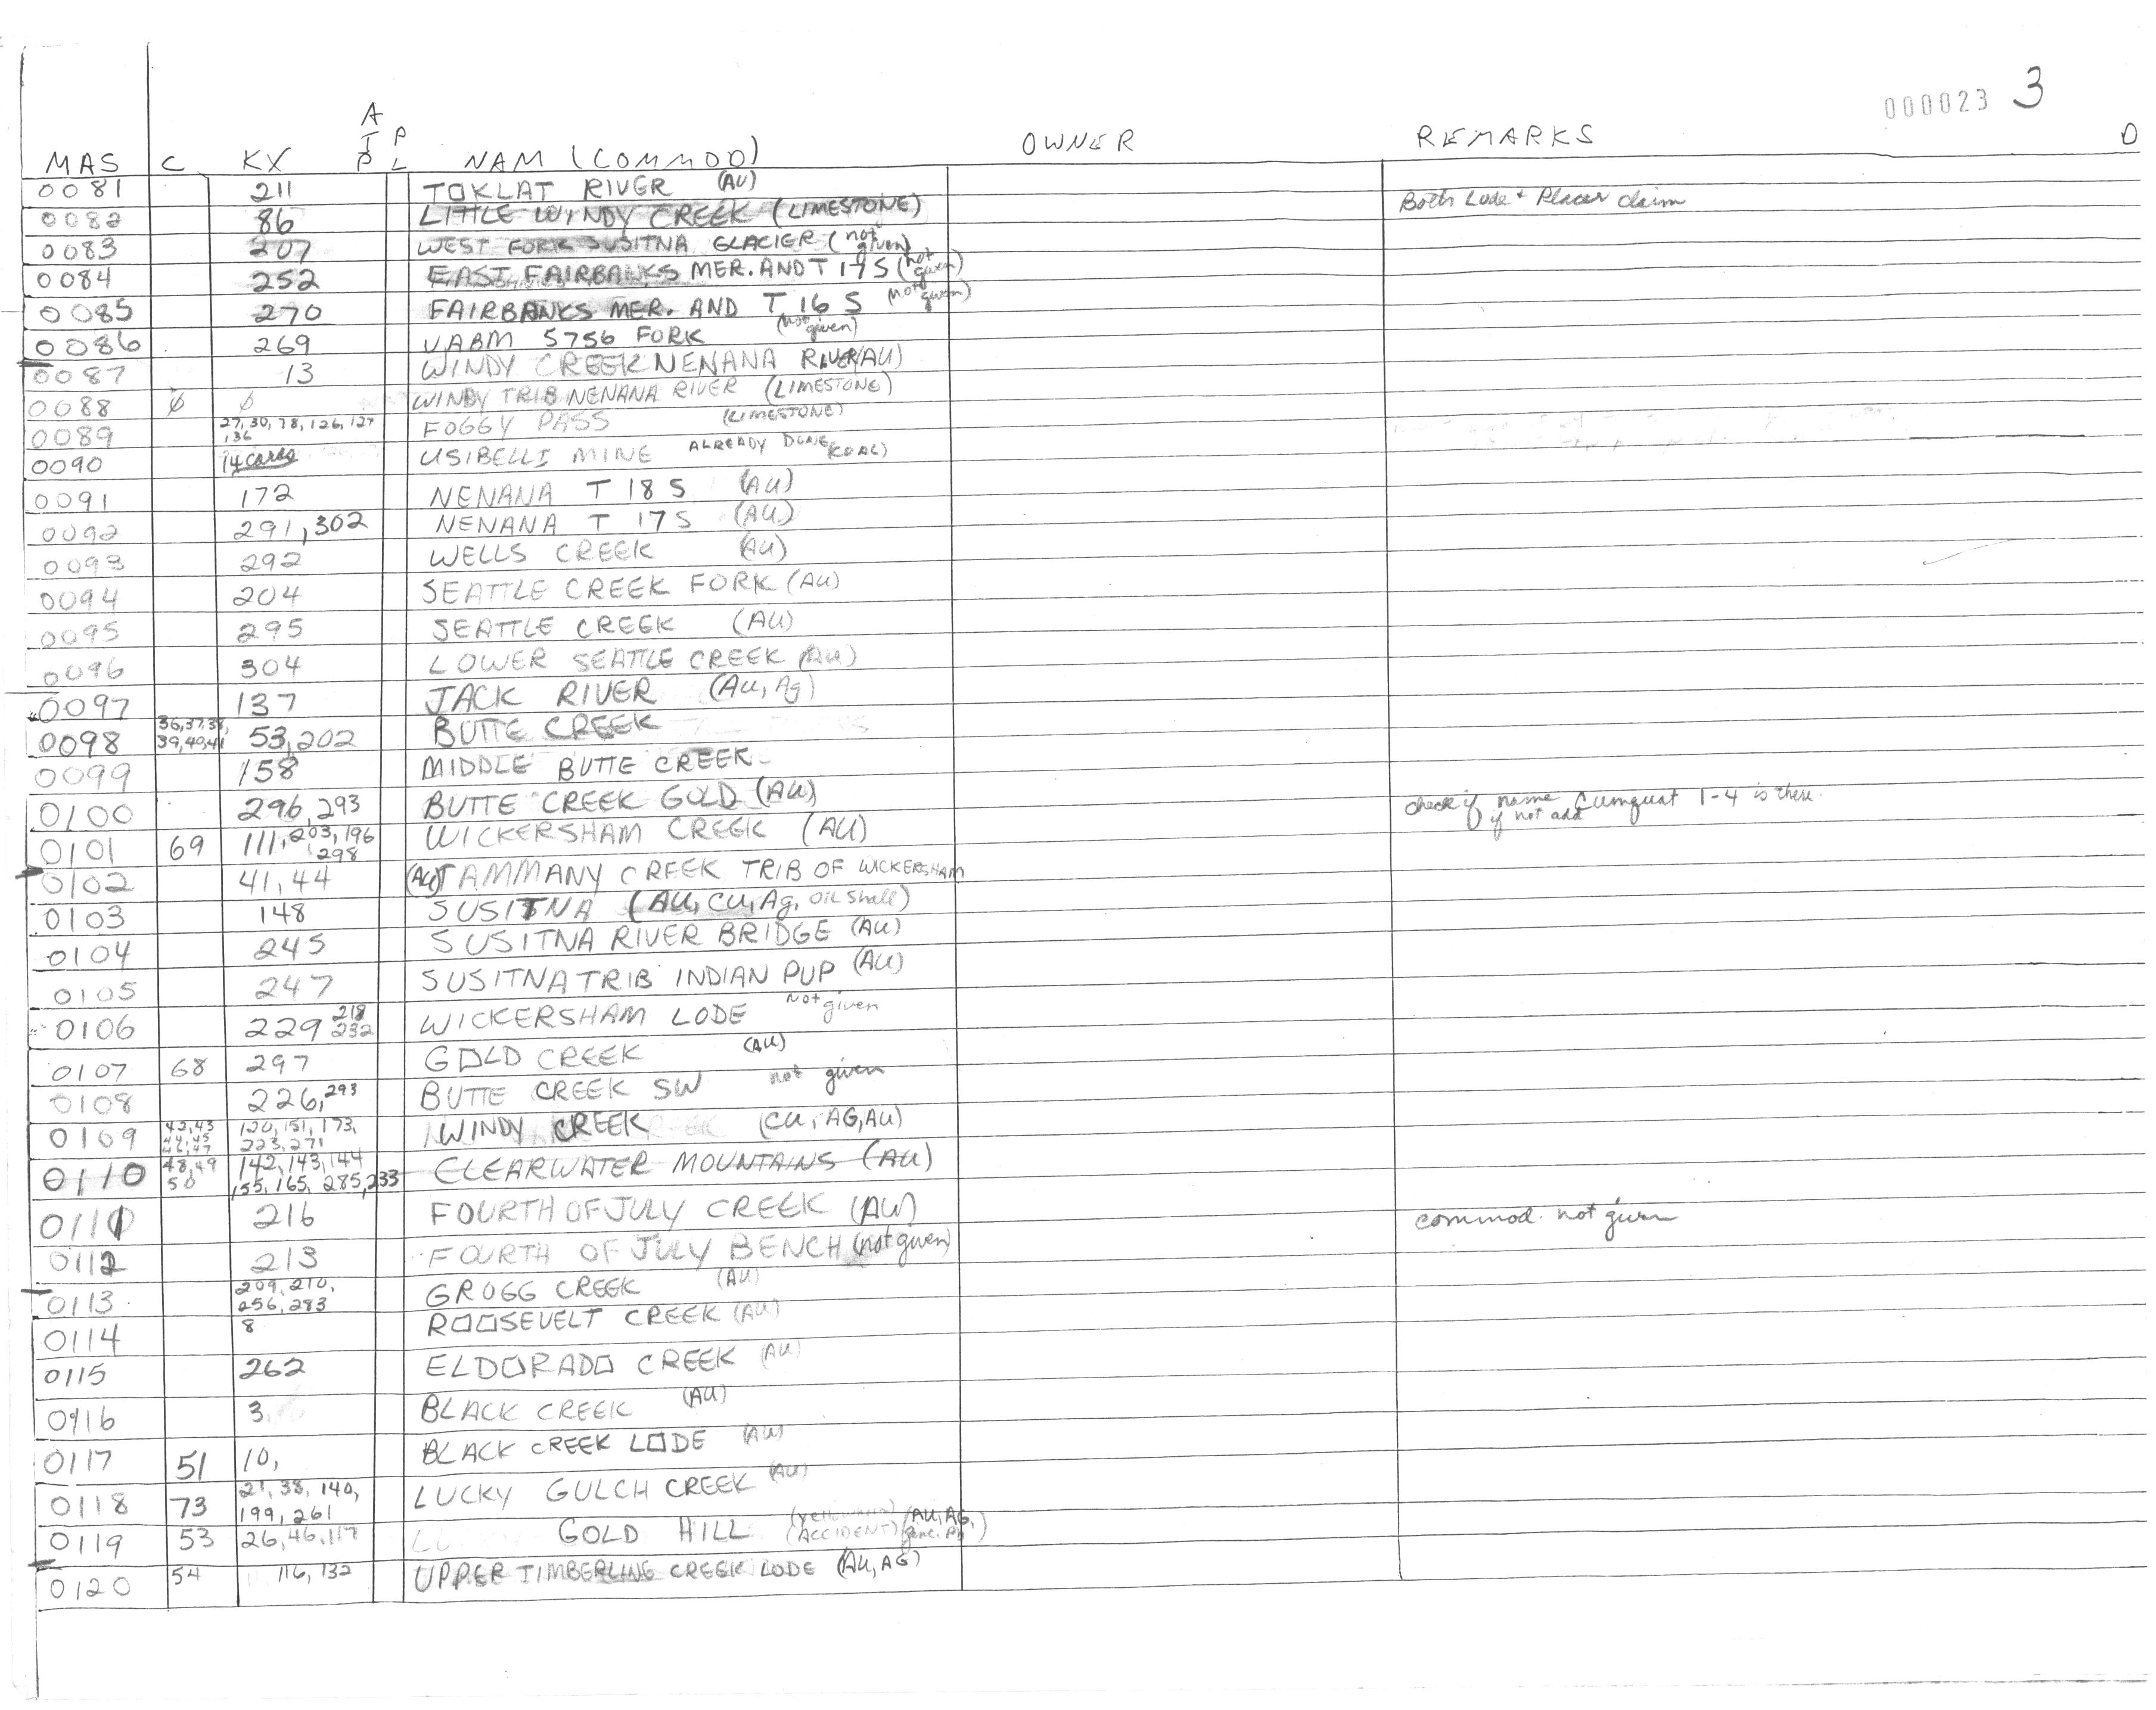 000023 3
A
T P
MAS C KX P L NAM (COMMOD) OWNER REMARKS D
0081 211 TOKLAT RIVER (AU)
0082 86 LITTLE WINDY CREEK (LIMESTONE) Both Lode + Placer claim
0083 207 WEST FORK SUSITNA GLACIER (not given)
0084 252 EAST FAIRBANKS MER. AND T 17 S (not given)
0085 270 FAIRBANKS MER. AND T 16 S (not given)
0086 269 VABM 5756 FORK (not given)
0087 13 WINDY CREEK NENANA RIVER (AU)
0088 ϕ ϕ WINDY TRIB NENANA RIVER (LIMESTONE)
0089 27, 30, 78, 126, 127 136 FOGGY PASS (LIMESTONE)
0090 14 cards USIBELLI MINE ALREADY DONE (COAL)
0091 172 NENANA T 18 S (AU)
0092 291, 302 NENANA T 17 S (AU)
0093 292 WELLS CREEK (AU)
0094 204 SEATTLE CREEK FORK (AU)
0095 295 SEATTLE CREEK (AU)
0096 304 LOWER SEATTLE CREEK (AU)
0097 137 JACK RIVER (AU, Ag)
0098 36, 37, 38, 39, 40, 41 53, 202 BUTTE CREEK
0099 158 MIDDLE BUTTE CREEK
0100 296, 293 BUTTE CREEK GOLD (AU) check if name Cumquat 1-4 is there. if not add
0101 69 111, 203, 196 298 WICKERSHAM CREEK (AU)
0102 41, 44 (AU) TAMMANY CREEK TRIB OF WICKERSHAM
0103 148 SUSITNA (AU, CU, Ag, OIL Shall)
0104 245 SUSITNA RIVER BRIDGE (AU)
0105 247 SUSITNA TRIB INDIAN PUP (AU)
0106 229 218 232 WICKERSHAM LODE Not given
0107 68 297 GOLD CREEK (AU)
0108 226, 293 BUTTE CREEK SW not given
0109 42, 43 44, 45 46, 47 120, 151, 173, 223, 271 WINDY CREEK (CU, AG, AU)
0110 48, 49 50 142, 143, 144 155, 165, 285, 233 CLEARWATER MOUNTAINS (AU)
0111 216 FOURTH OF JULY CREEK (AU) commod. not given
0112 213 FOURTH OF JULY BENCH (not given)
0113 209, 210, 256, 283 GROGG CREEK (AU)
0114 8 ROOSEVELT CREEK (AU)
0115 262 ELDORADO CREEK (AU)
0116 3 BLACK CREEK (AU)
0117 51 10, BLACK CREEK LODE (AU)
0118 73 21, 38, 140, 199, 261 LUCKY GULCH CREEK (AU)
0119 53 26, 46, 117 GOLD HILL (ACCIDENT) (AU, AG,
0120 54 116, 132 UPPER TIMBERLINE CREEK LODE (AU, AG)